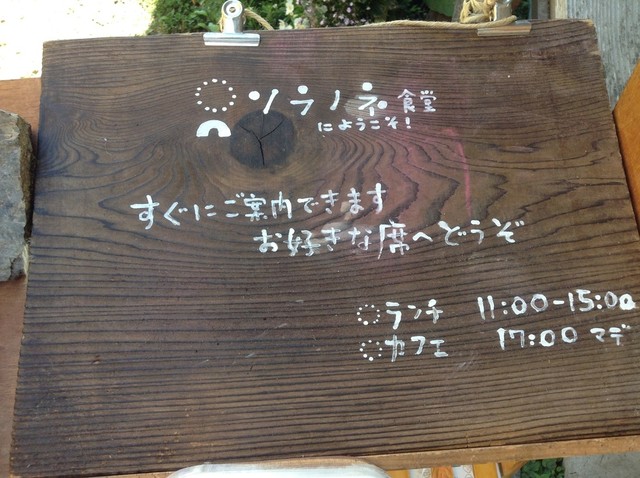 ソラノネ食堂
にようこそ!
すぐにご案内できます
お好きな席へどうぞ
ランチ 11:00-15:00
カフェ 17:00マデ